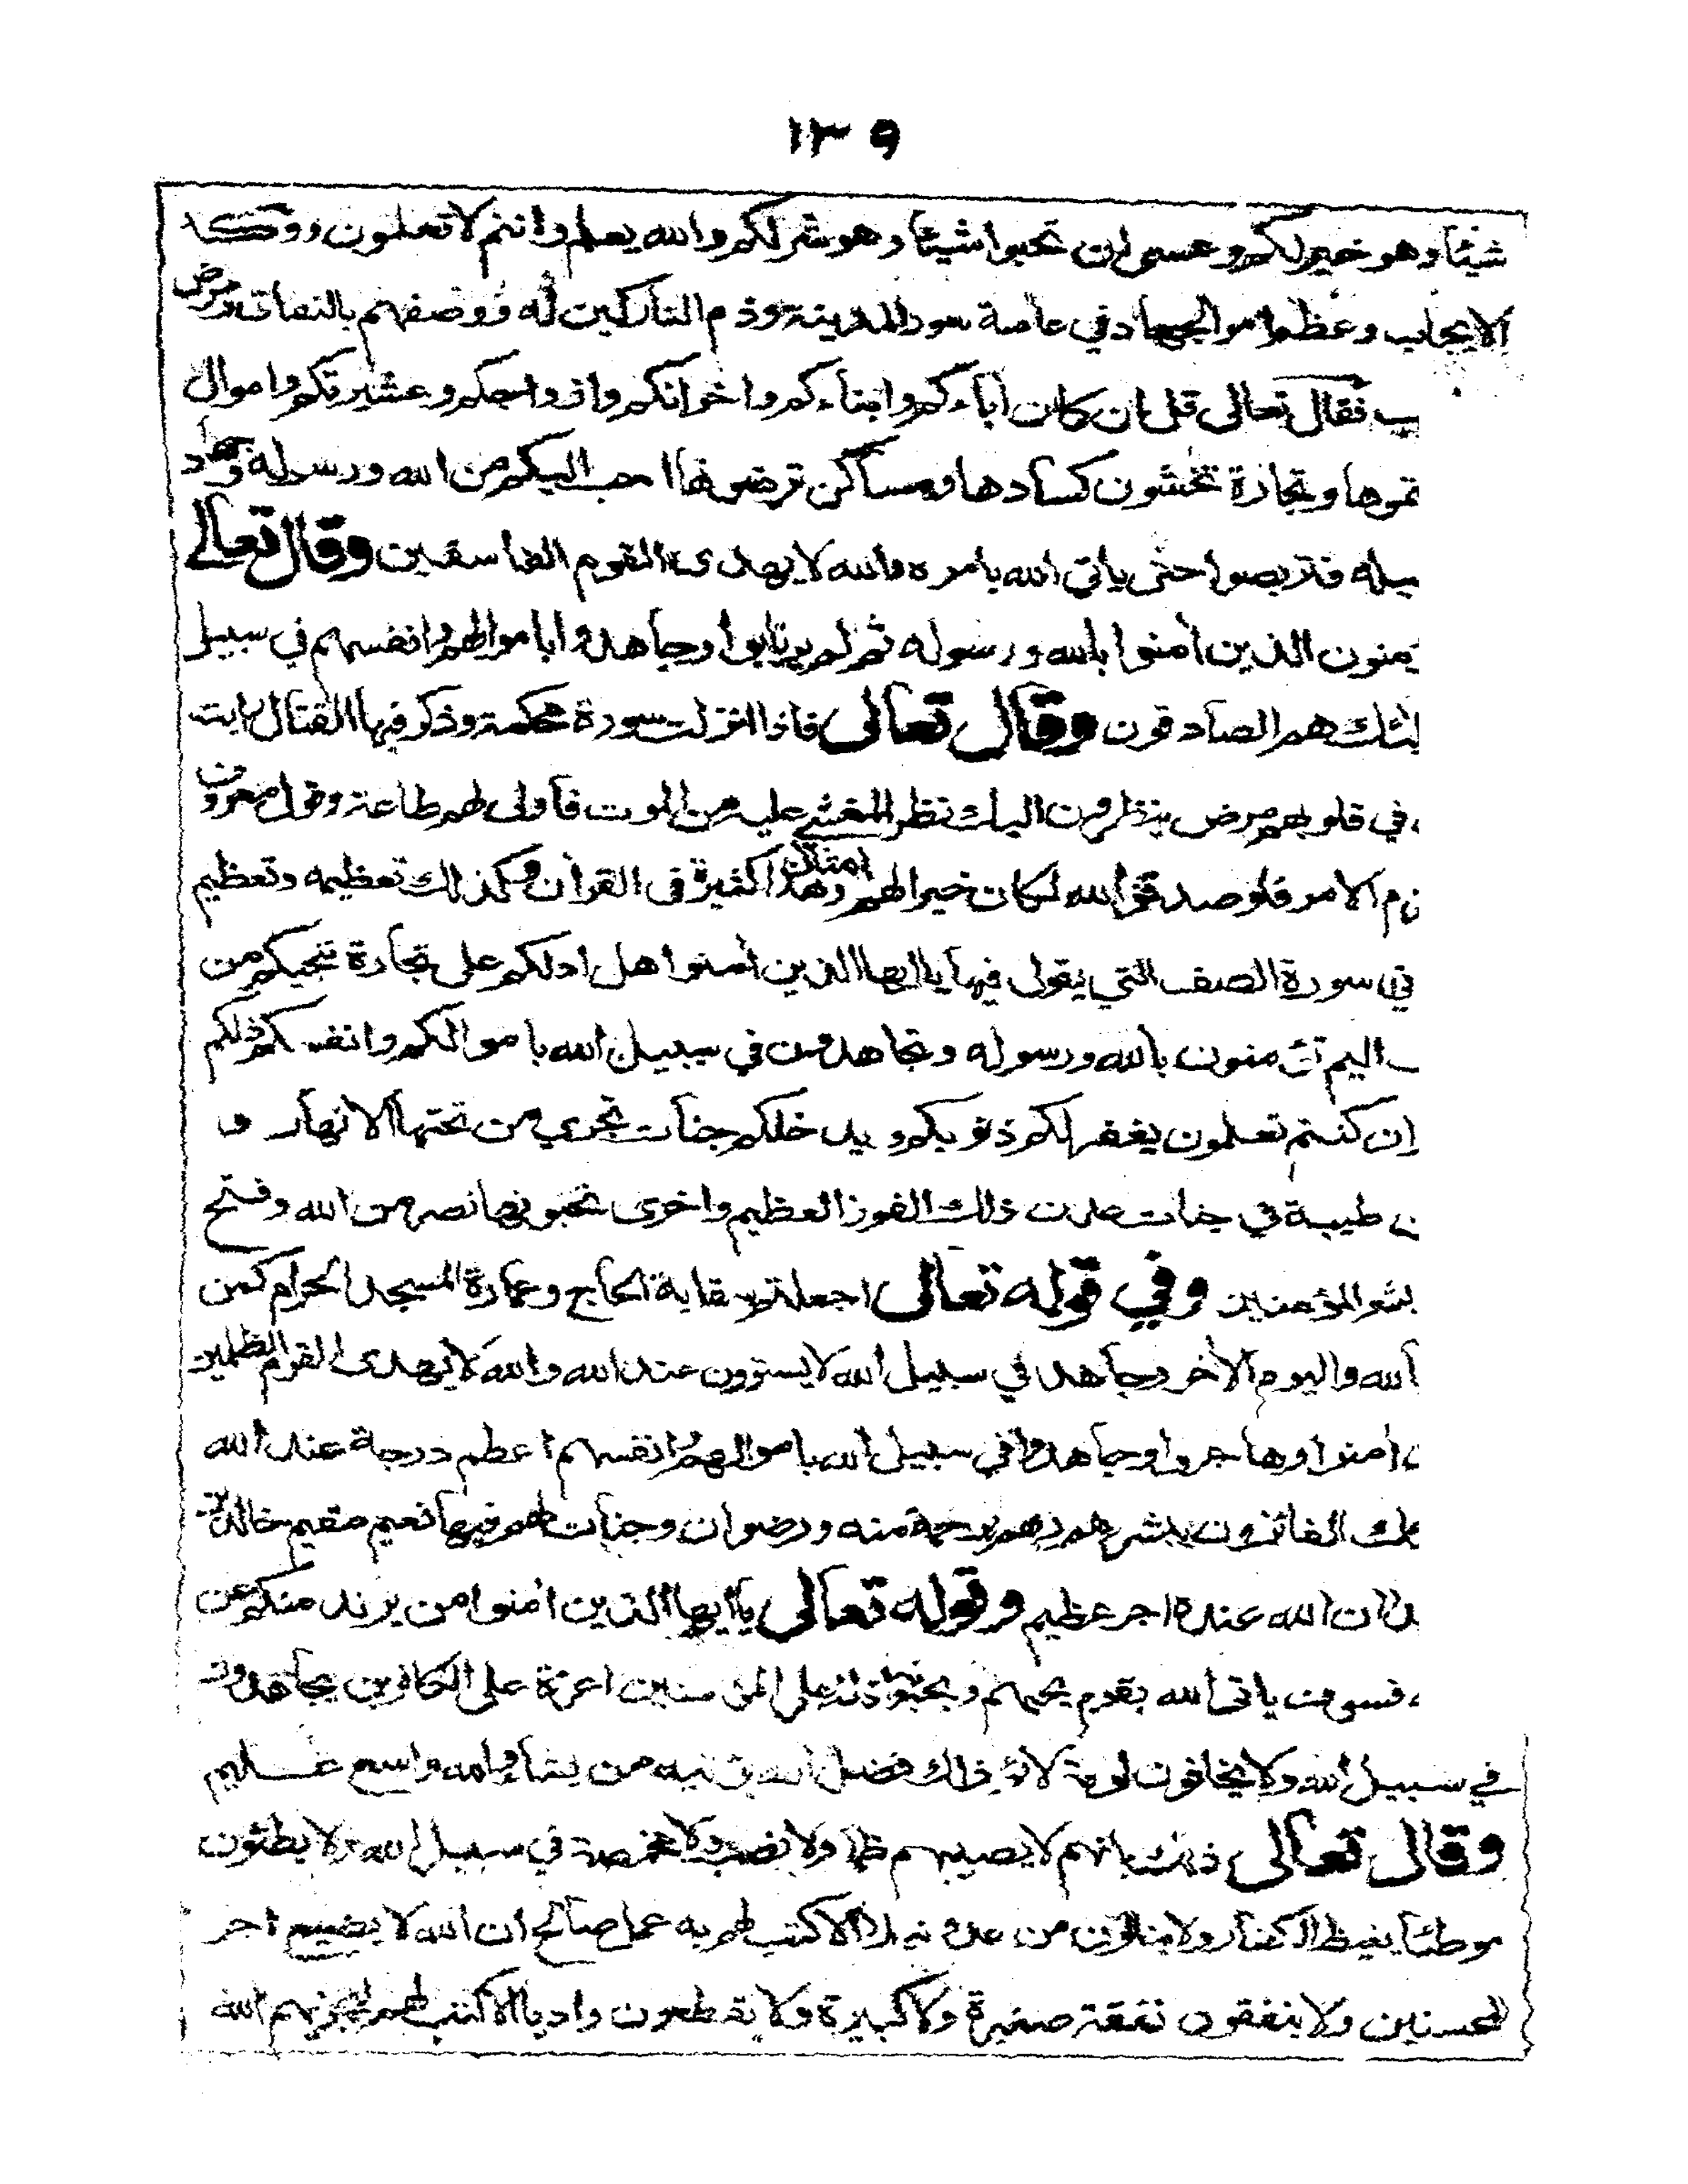 ١٣٩
شيئا وهو خير لكم وعسى ان تحبوا شيئا وهو شر لكم والله يعلم وانتم لا تعلمون ووكد
الايجاب وعظم امر الجهاد في عامة سور المدينة وذم التاركين له ووصفهم بالنفاق ومرض
ب فقال تعالى قل ان كان اباءكم وابناءكم واخوانكم وازواجكم وعشيرتكم واموال
تموها وتجارة تخشون كسادها ومساكن ترضونها احب اليكم من الله ورسوله وجهاد
سبيله فتربصوا حتى ياتي الله بامره والله لا يهدى القوم الفاسقين وقال تعالى
منون الذين أمنوا بالله ورسوله ثم لم يرتابوا وجاهدوا باموالهم وانفسهم في سبيل
لئك هم الصادقون وقال تعالى فاذا انزلت سورة محكمة وذكر فيها القتال رايت
في قلوبهم مرض ينظرون اليك نظر المغشي عليه من الموت فأولى لهم طاعة وقول معروف
زم الامر فلو صدقوا الله لكان خيرا لهم وهذا امثال كثيرة فى القرأن وكذلك تعظيمه وتعظيم
في سورة الصف التي يقول فيها ياايها الذين أمنوا هل ادلكم على تجارة تنجيكم من
ب اليم تؤمنون بالله ورسوله وتجاهدون في سبيل الله باموالكم وانفسكم ذلكم
ان كنتم تعلمون يغفر لكم ذنوبكم ويدخلكم جنات تجري من تحتها الانهار و
ن طيبة في جنات عدن ذلك الفوز العظيم واخرى تحبونها نصر من الله وفتح
بشر المؤمنين وفي قوله تعالى اجعلتم سقاية الحاج وعمارة المسجد الحرام كمن
الله واليوم الأخر وجاهد في سبيل الله لا يستوون عند الله والله لا يهدى القوم الظلمين
ن امنوا وهاجروا وجاهدوا في سبيل الله باموالهم وانفسهم اعظم درجة عند الله
ئك الفائزون يبشرهم ربهم برحمة منه ورضوان وجنات لهم فيها نعيم مقيم خالدين
دا ان الله عنده اجر عظيم وقوله تعالى ياايها الذين امنوا من يرتد منكم عن
فسوف ياتى الله بقوم يحبهم ويحبونه اذلة على المؤمنين اعزة على الكافرين يجاهدون
في سبيل الله ولا يخافون لومة لائم ذلك فضل الله يؤتيه من يشاء والله واسع عليم
وقال تعالى ذلك بانهم لا يصيبهم ظمأ ولا نصب ولا مخمصة في سبيل الله ولا يطئون
موطئا يغيظ الكفار ولا ينالون من عدو نيلا الا كتب لهم به عمل صالح ان الله لا يضيع اجر
المحسنين ولا ينفقون نفقة صغيرة ولا كبيرة ولا يقطعون واديا الا كتب لهم ليجزيهم الله